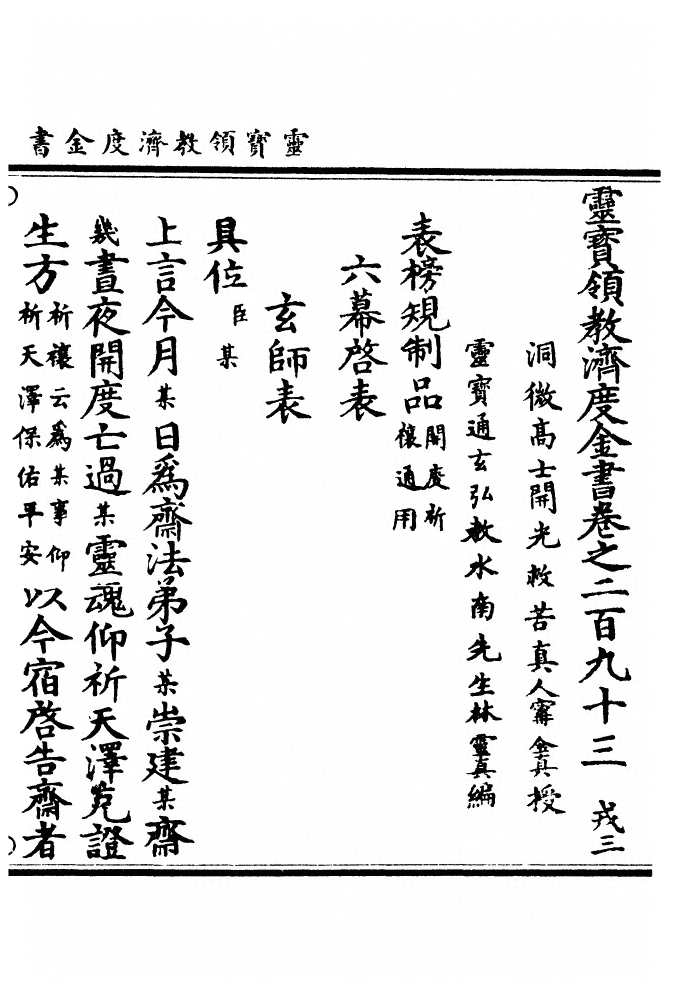 靈寶領教濟度金書
靈寶領教濟度金書卷之二百九十三 戎三
洞微高士開光救苦真人甯全真授
靈寶通玄弘教水南先生林靈真編
表榜規制品開度祈禳通用
六幕啓表
玄師表
具位臣某
上言今月某日爲齋法弟子某崇建某齋
幾晝夜開度亡過某靈魂仰祈天澤克證
生方祈禳云爲某事仰祈天澤保佑平安以今宿啓告齋者